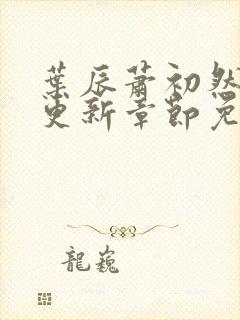 葉辰蕭初然
更新章節免
龍巍